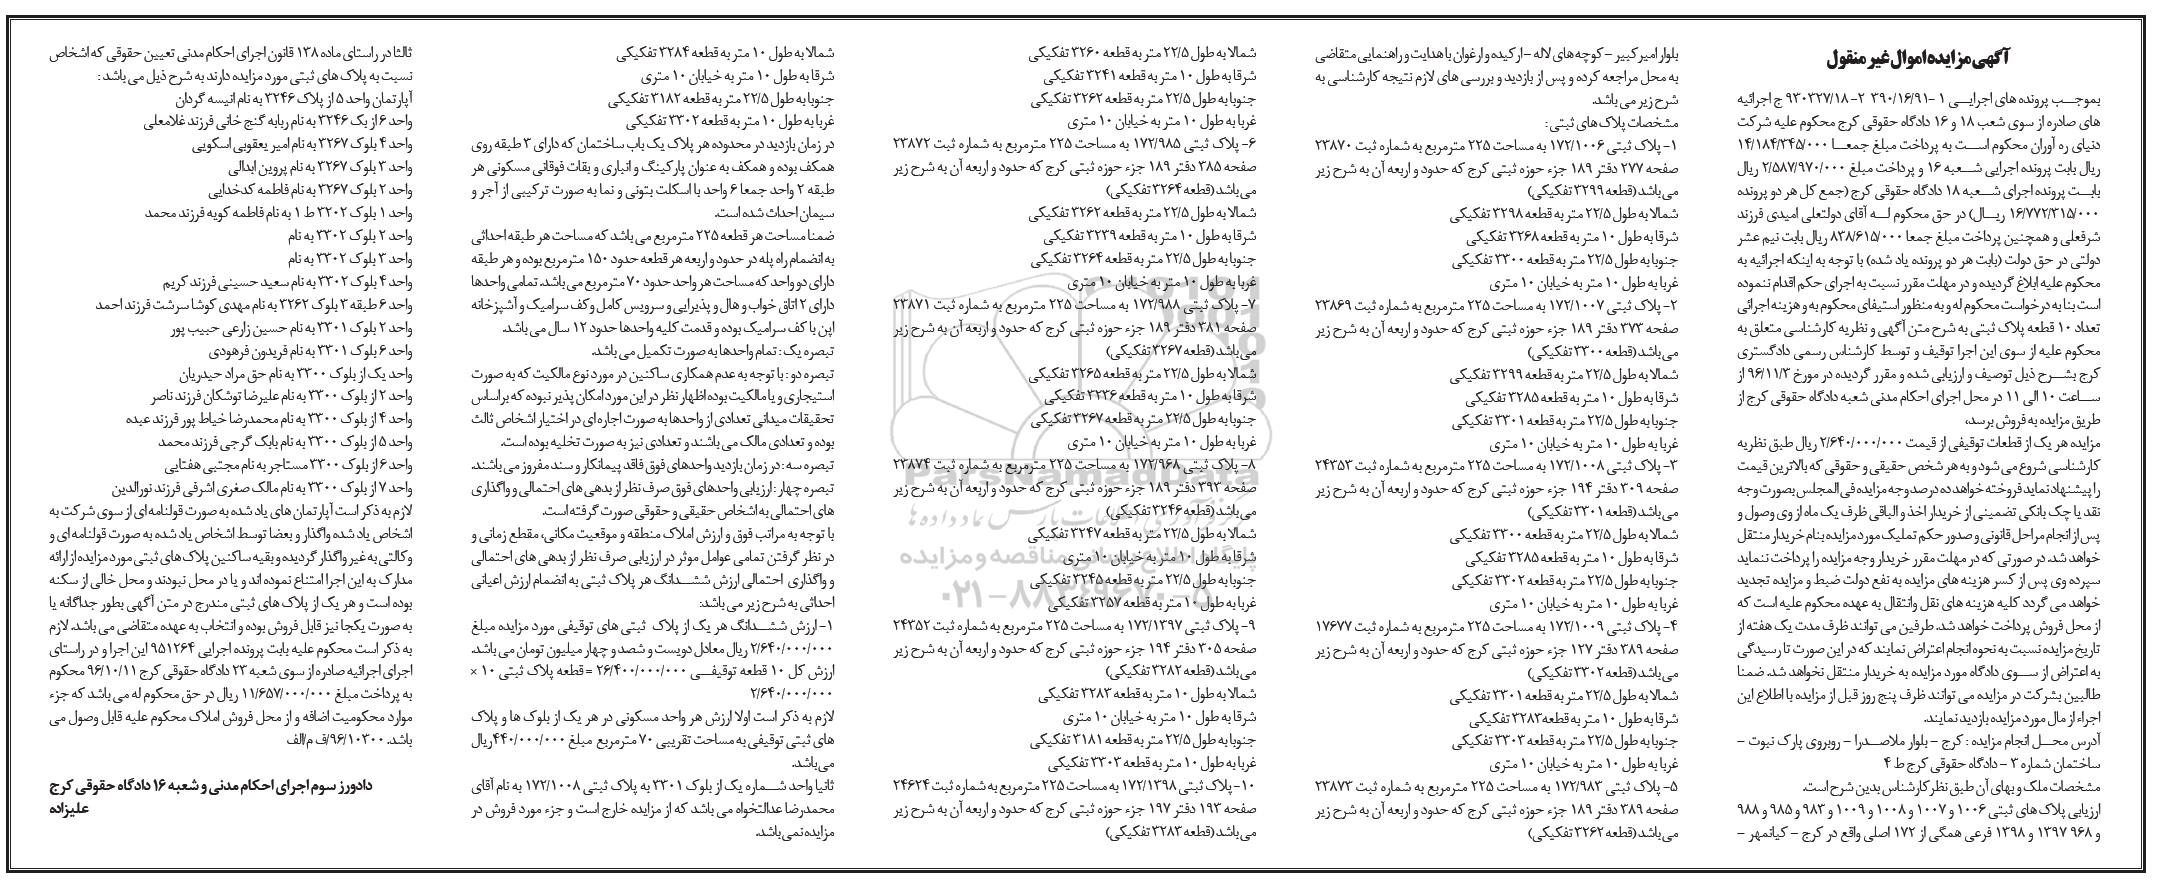 آگهی مزایده اموال غیر منقول
بموجب پرونده های اجرایی ۱ -۳۹۰/۱۶/۹۱ ۲- ۹۳۰۳۲۷/۱۸ ج اجرائیه
های صادره از سوی شعب ۱۸ و ۱۶ دادگاه حقوقی کرج محکوم علیه شرکت
دنیای ره آوران محکوم است به پرداخت مبلغ جمعا ۱۴/۱۸۴/۳۴۵/۰۰۰
ریال بابت پرونده اجرایی شعبه ۱۶ و پرداخت مبلغ ۲/۵۸۷/۹۷۰/۰۰۰ ریال
بابت پرونده اجرای شعبه ۱۸ دادگاه حقوقی کرج (جمع کل هر دو پرونده
۱۶/۷۷۲/۳۱۵/۰۰۰ ریال) در حق محکوم له آقای دولتعلی امیدی فرزند
شرفعلی و همچنین پرداخت مبلغ جمعا ۸۳۸/۶۱۵/۰۰۰ ریال بابت نیم عشر
دولتی در حق دولت (بابت هر دو پرونده یاد شده) با توجه به اینکه اجرائیه به
محکوم علیه ابلاغ گردیده و در مهلت مقرر نسبت به اجرای حکم اقدام ننموده
است بنا به درخواست محکوم له و به منظور استیفای محکوم به و هزینه اجرائی
تعداد ۱۰ قطعه پلاک ثبتی به شرح متن آگهی و نظریه کارشناسی متعلق به
محکوم علیه از سوی این اجرا توقیف و توسط کارشناس رسمی دادگستری
کرج بشرح ذیل توصیف و ارزیابی شده و مقرر گردیده در مورخ ۹۶/۱۱/۳ از
ساعت ۱۰ الی ۱۱ در محل اجرای احکام مدنی شعبه دادگاه حقوقی کرج از
طریق مزایده به فروش برسد،
مزایده هر یک از قطعات توقیفی از قیمت ۲/۶۴۰/۰۰۰/۰۰۰ ریال طبق نظریه
کارشناسی شروع می شود و به هر شخص حقیقی و حقوقی که بالاترین قیمت
را پیشنهاد نماید فروخته خواهد ده درصد وجه مزایده فی المجلس بصورت وجه
نقد یا چک بانکی تضمینی از خریدار اخذ و الباقی ظرف یک ماه از وی وصول و
پس از انجام مراحل قانونی و صدور حکم تملیک مورد مزایده بنام خریدار منتقل
خواهد شد. در صورتی که در مهلت مقرر خریدار وجه مزایده را پرداخت ننماید
سپرده وی پس از کسر هزینه های مزایده به نفع دولت ضبط و مزایده تجدید
خواهد می گردد کلیه هزینه های نقل وانتقال به عهده محکوم علیه است که
از محل فروش پرداخت خواهد شد. طرفین می توانند ظرف مدت یک هفته از
تاریخ مزایده نسبت به نحوه انجام اعتراض نمایند که در این صورت تا رسیدگی
به اعتراض از سوی دادگاه مورد مزایده به خریدار منتقل نخواهد شد. ضمنا
طالبین بشرکت در مزایده می توانند ظرف پنج روز قبل از مزایده با اطلاع این
اجراء از مال مورد مزایده بازدید نمایند.
آدرس محل انجام مزایده : کرج - بلوار ملاصدرا - روبروی پارک نبوت -
ساختمان شماره ۳ - دادگاه حقوقی کرج ط ۴
مشخصات ملک و بهای آن طبق نظر کارشناس بدین شرح است.
ارزیابی پلاک های ثبتی ۱۰۰۶ و ۱۰۰۷ و ۱۰۰۸ و ۱۰۰۹ و ۹۸۳ و ۹۸۵ و ۹۸۸
و ۹۶۸ ۱۳۹۷ و ۱۳۹۸ فرعی همگی از ۱۷۲ اصلی واقع در کرج - کیانمهر -
بلوار امیر کبیر - کوچه های لاله - ارکیده و ارغوان با هدایت و راهنمایی متقاضی
به محل مراجعه کرده و پس از بازدید و بررسی های لازم نتیجه کارشناسی به
شرح زیر می باشد.
مشخصات پلاک های ثبتی :
۱- پلاک ثبتی ۱۷۲/۱۰۰۶ به مساحت ۲۲۵ مترمربع به شماره ثبت ۲۳۸۷۰
صفحه ۲۷۷ دفتر ۱۸۹ جزء حوزه ثبتی کرج که حدود و اربعه آن به شرح زیر
می باشد (قطعه ۳۲۹۹ تفکیکی)
شمالا به طول ۲۲/۵ متر به قطعه ۳۲۹۸ تفکیکی
شرقا به طول ۱۰ متر به قطعه ۳۲۶۸ تفکیکی
جنوبا به طول ۲۲/۵ متر به قطعه ۳۳۰۰ تفکیکی
غربا به طول ۱۰ متر به خیابان ۱۰ متری
۲- پلاک ثبتی ۱۷۲/۱۰۰۷ به مساحت ۲۲۵ مترمربع به شماره ثبت ۲۳۸۶۹
صفحه ۳۷۳ دفتر ۱۸۹ جزء حوزه ثبتی کرج که حدود و اربعه آن به شرح زیر
می باشد (قطعه ۳۳۰۰ تفکیکی)
شمالا به طول ۲۲/۵ متر به قطعه ۳۲۹۹ تفکیکی
شرقا به طول ۱۰ متر به قطعه ۳۲۸۵ تفکیکی
جنوبا به طول ۲۲/۵ متر به قطعه ۳۳۰۱ تفکیکی
غربا به طول ۱۰ متر به خیابان ۱۰ متری
۳- پلاک ثبتی ۱۷۲/۱۰۰۸ به مساحت ۲۲۵ مترمربع به شماره ثبت ۲۴۳۵۳
صفحه ۳۰۹ دفتر ۱۹۴ جزء حوزه ثبتی کرج که حدود و اربعه آن به شرح زیر
می باشد (قطعه ۳۳۰۱ تفکیکی)
شمالا به طول ۲۲/۵ متر به قطعه ۳۳۰۰ تفکیکی
شرقا به طول ۱۰ متر به قطعه ۳۲۸۵ تفکیکی
جنوبا به طول ۲۲/۵ متر به قطعه ۳۳۰۲ تفکیکی
غربا به طول ۱۰ متر به خیابان ۱۰ متری
۴- پلاک ثبتی ۱۷۲/۱۰۰۹ به مساحت ۲۲۵ مترمربع به شماره ثبت ۱۷۶۷۷
صفحه ۳۸۹ دفتر ۱۲۷ جزء حوزه ثبتی کرج که حدود و اربعه آن به شرح زیر
می باشد (قطعه ۳۳۰۲ تفکیکی)
شمالا به طول ۲۲/۵ متر به قطعه ۳۳۰۱ تفکیکی
شرقا به طول ۱۰ متر به قطعه ۳۲۸۳ تفکیکی
جنوبا به طول ۲۲/۵ متر به قطعه ۳۳۰۳ تفکیکی
غربا به طول ۱۰ متر به خیابان ۱۰ متری
۵- پلاک ثبتی ۱۷۲/۹۸۳ به مساحت ۲۲۵ مترمربع به شماره ثبت ۲۳۸۷۳
صفحه ۳۸۹ دفتر ۱۸۹ جزء حوزه ثبتی کرج که حدود و اربعه آن به شرح زیر
می باشد (قطعه ۳۲۶۲ تفکیکی)
شمالا به طول ۲۲/۵ متر به قطعه ۳۲۶۰ تفکیکی
شرقا به طول ۱۰ متر به قطعه ۳۲۴۱ تفکیکی
جنوبا به طول ۲۲/۵ متر به قطعه ۳۲۶۲ تفکیکی
غربا به طول ۱۰ متر به خیابان ۱۰ متری
۶- پلاک ثبتی ۱۷۲/۹۸۵ به مساحت ۲۲۵ مترمربع به شماره ثبت ۲۳۸۷۲
صفحه ۳۸۵ دفتر ۱۸۹ جزء حوزه ثبتی کرج که حدود و اربعه آن به شرح زیر
می باشد (قطعه ۳۲۶۴ تفکیکی)
شمالا به طول ۲۲/۵ متر به قطعه ۳۲۶۲ تفکیکی
شرقا به طول ۱۰ متر به قطعه ۳۲۳۹ تفکیکی
جنوبا به طول ۲۲/۵ متر به قطعه ۳۲۶۴ تفکیکی
غربا به طول ۱۰ متر به خیابان ۱۰ متری
۷- پلاک ثبتی ۱۷۲/۹۸۸ به مساحت ۲۲۵ مترمربع به شماره ثبت ۲۳۸۷۱
صفحه ۳۸۱ دفتر ۱۸۹ جزء حوزه ثبتی کرج که حدود و اربعه آن به شرح زیر
می باشد (قطعه ۳۲۶۷ تفکیکی)
شمالا به طول ۲۲/۵ متر به قطعه ۳۲۶۵ تفکیکی
شرقا به طول ۱۰ متر به قطعه ۳۲۳۶ تفکیکی
جنوبا به طول ۲۲/۵ متر به قطعه ۳۲۶۷ تفکیکی
غربا به طول ۱۰ متر به خیابان ۱۰ متری
۸- پلاک ثبتی ۱۷۲/۹۶۸ به مساحت ۲۲۵ مترمربع به شماره ثبت ۲۳۸۷۴
صفحه ۳۹۳ دفتر ۱۸۹ جزء حوزه ثبتی کرج که حدود و اربعه آن به شرح زیر
می باشد (قطعه ۳۲۴۶ تفکیکی)
شمالا به طول ۲۲/۵ متر به قطعه ۳۲۴۷ تفکیکی
شرقا به طول ۱۰ متر به خیابان ۱۰ متری
جنوبا به طول ۲۲/۵ متر به قطعه ۳۲۴۵ تفکیکی
غربا به طول ۱۰ متر به قطعه ۳۲۵۷ تفکیکی
۹- پلاک ثبتی ۱۷۲/۱۳۹۷ به مساحت ۲۲۵ مترمربع به شماره ثبت ۲۴۳۵۲
صفحه ۳۰۵ دفتر ۱۹۴ جزء حوزه ثبتی کرج که حدود و اربعه آن به شرح زیر
می باشد (قطعه ۳۲۸۲ تفکیکی)
شمالا به طول ۱۰ متر به قطعه ۳۲۸۳ تفکیکی
شرقا به طول ۱۰ متر به خیابان ۱۰ متری
جنوبا به طول ۲۲/۵ متر به قطعه ۳۱۸۱ تفکیکی
غربا به طول ۱۰ متر به قطعه ۳۳۰۳ تفکیکی
۱۰- پلاک ثبتی ۱۷۲/۱۳۹۸ به مساحت ۲۲۵ مترمربع به شماره ثبت ۲۴۶۲۴
صفحه ۱۹۳ دفتر ۱۹۷ جزء حوزه ثبتی کرج که حدود و اربعه آن به شرح زیر
می باشد (قطعه ۳۲۸۳ تفکیکی)
شمالا به طول ۱۰ متر به قطعه ۳۲۸۴ تفکیکی
شرقا به طول ۱۰ متر به خیابان ۱۰ متری
جنوبا به طول ۲۲/۵ متر به قطعه ۳۱۸۲ تفکیکی
غربا به طول ۱۰ متر به قطعه ۳۳۰۲ تفکیکی
در زمان بازدید در محدوده هر پلاک یک باب ساختمان که دارای ۳ طبقه روی
همکف بوده و همکف به عنوان پارکینگ و انباری و بقات فوقانی مسکونی هر
طبقه ۲ واحد جمعا ۶ واحد با اسکلت بتونی و نما به صورت ترکیبی از آجر و
سیمان احداث شده است.
ضمنا مساحت هر قطعه ۲۲۵ مترمربع می باشد که مساحت هر طبقه احداثی
به انضمام راه پله در حدود و اربعه هر قطعه حدود ۱۵۰ مترمربع بوده و هر طبقه
دارای دو واحد که مساحت هر واحد حدود ۷۰ مترمربع می باشد. تمامی واحدها
دارای ۲ اتاق خواب و هال و پذیرایی و سرویس کامل و کف سرامیک و آشپزخانه
اپن با کف سرامیک بوده و قدمت کلیه واحدها حدود ۱۲ سال می باشد.
تبصره یک : تمام واحدها به صورت تکمیل می باشد.
تبصره دو : با توجه به عدم همکاری ساکنین در مورد نوع مالکیت که به صورت
استیجاری و یا مالکیت بوده اظهار نظر در این مورد امکان پذیر نبوده که براساس
تحقیقات میدانی تعدادی از واحدها به صورت اجاره ای در اختیار اشخاص ثالث
بوده و تعدادی مالک می باشند و تعدادی نیز به صورت تخلیه بوده است.
تبصره سه : در زمان بازدید واحدهای فوق فاقد پیمانکار و سند مفروز می باشند.
تبصره چهار : ارزیابی واحدهای فوق صرف نظر از بدهی های احتمالی و واگذاری
های احتمالی به اشخاص حقیقی و حقوقی صورت گرفته است.
با توجه به مراتب فوق و ارزش املاک منطقه و موقعیت مکانی، مقطع زمانی و
در نظر گرفتن تمامی عوامل موثر در ارزیابی صرف نظر از بدهی های احتمالی
و واگذاری احتمالی ارزش ششدانگ هر پلاک ثبتی به انضمام ارزش اعیانی
احداثی به شرح زیر می باشد:
۱- ارزش ششدانگ هر یک از پلاک ثبتی های توقیفی مورد مزایده مبلغ
۲/۶۴۰/۰۰۰/۰۰۰ ریال معادل دویست و شصد و چهار میلیون تومان می باشد.
ارزش کل ۱۰ قطعه توقیفی ۲۶/۴۰۰/۰۰۰/۰۰۰ = قطعه پلاک ثبتی ۱۰ ×
۲/۶۴۰/۰۰۰/۰۰۰
لازم به ذکر است اولا ارزش هر واحد مسکونی در هر یک از بلوک ها و پلاک
های ثبتی توقیفی به مساحت تقریبی ۷۰ مترمربع مبلغ ۴۴۰/۰۰۰/۰۰۰ ریال
می باشد.
ثانیا واحد شماره یک از بلوک ۳۳۰۱ به پلاک ثبتی ۱۷۲/۱۰۰۸ به نام آقای
محمدرضا عدالتخواه می باشد که از مزایده خارج است و جزء مورد فروش در
مزایده نمی باشد.
ثالثا در راستای ماده ۱۳۸ قانون اجرای احکام مدنی تعیین حقوقی که اشخاص
نسبت به پلاک های ثبتی مورد مزایده دارند به شرح ذیل می باشد :
آپارتمان واحد ۵ از پلاک ۳۲۴۶ به نام انیسه گردان
واحد ۶ از یک ۳۲۴۶ به نام ربابه گنج خانی فرزند غلامعلی
واحد ۴ بلوک ۳۲۶۷ به نام امیر یعقوبی اسکویی
واحد ۳ بلوک ۳۲۶۷ به نام پروین ابدالی
واحد ۲ بلوک ۳۲۶۷ به نام فاطمه کدخدایی
واحد ۱ بلوک ۳۲۰۲ ط ۱ به نام فاطمه کویه فرزند محمد
واحد ۲ بلوک ۳۳۰۲ به نام
واحد ۳ بلوک ۳۳۰۲ به نام
واحد ۴ بلوک ۳۳۰۲ به نام سعید حسینی فرزند کریم
واحد ۶ طبقه ۳ بلوک ۳۲۶۲ به نام مهدی کوشا سرشت فرزند احمد
واحد ۲ بلوک ۳۳۰۱ به نام حسین زارعی حبیب پور
واحد ۶ بلوک ۳۳۰۱ به نام فریدون فرهودی
واحد یک از بلوک ۳۳۰۰ به نام حق مراد حیدریان
واحد ۲ از بلوک ۳۳۰۰ به نام علیرضا توشکان فرزند ناصر
واحد ۴ از بلوک ۳۳۰۰ به نام محمدرضا خیاط پور فرزند عبده
واحد ۵ از بلوک ۳۳۰۰ به نام بابک گرجی فرزند محمد
واحد ۶ از بلوک ۳۳۰۰ مستاجر به نام مجتبی هفتایی
واحد ۷ از بلوک ۳۳۰۰ به نام مالک صغری اشرفی فرزند نورالدین
لازم به ذکر است آپارتمان های یاد شده به صورت قولنامه ای از سوی شرکت به
اشخاص یاد شده واگذار و بعضا توسط اشخاص یاد شده به صورت قولنامه ای و
وکالتی به غیر واگذار گردیده و بقیه ساکنین پلاک های ثبتی مورد مزایده از ارائه
مدارک به این اجرا امتناع نموده اند و یا در محل نبودند و محل خالی از سکنه
بوده است و هر یک از پلاک های ثبتی مندرج در متن آگهی بطور جداگانه یا
به صورت یکجا نیز قابل فروش بوده و انتخاب به عهده متقاضی می باشد. لازم
به ذکر است محکوم علیه بابت پرونده اجرایی ۹۵۱۲۶۴ این اجرا و در راستای
اجرای اجرائیه صادره از سوی شعبه ۲۳ دادگاه حقوقی کرج ۹۶/۱۰/۱۱ محکوم
به پرداخت مبلغ ۱۱/۶۵۷/۰۰۰/۰۰۰ ریال در حق محکوم له می باشد که جزء
موارد محکومیت اضافه و از محل فروش املاک محکوم علیه قابل وصول می
باشد. ۹۶/۱۰۳۰۰/ف م/الف
دادورز سوم اجرای احکام مدنی و شعبه ۱۶ دادگاه حقوقی کرج
علیزاده
ParsNamadData
پایگاه اطلاع رسانی مناقصه و مزایده
۰۲۱-۸۸۳۴۹۶۷۰-۵